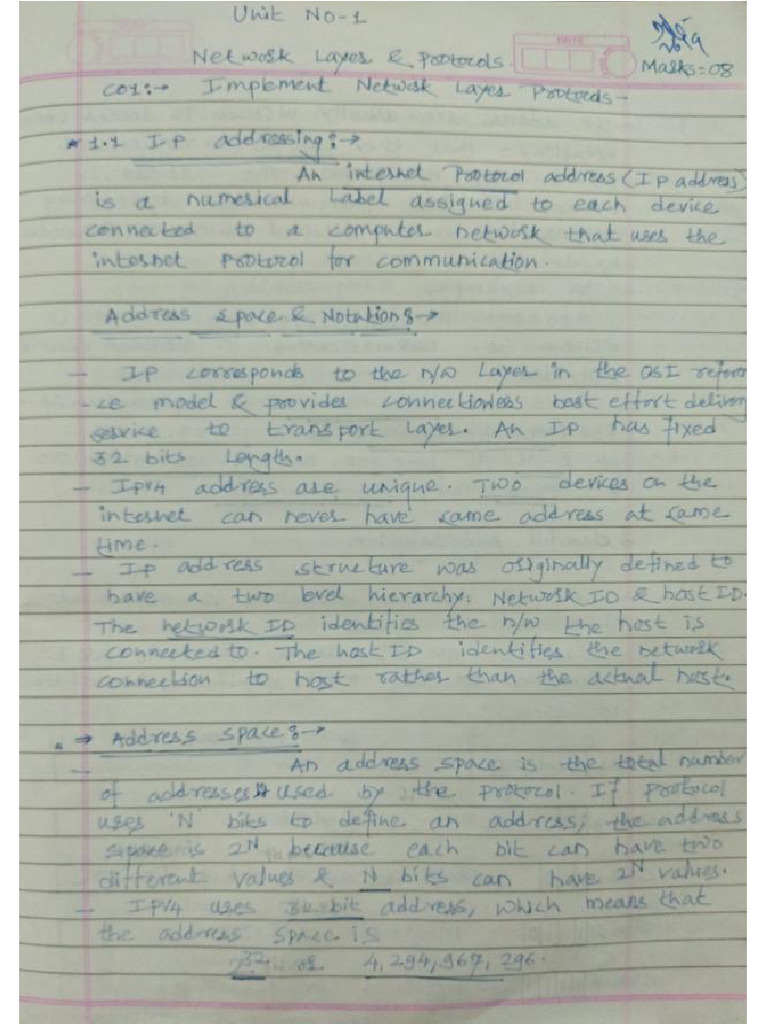 Unit No-1
Network Layer & Protocols.
Marks=08
CO1:→ Implement Network Layer Protocols-
* 1.1 IP addressing:→
An internet Protocol address (IP address)
is a numerical Label assigned to each device
connected to a computer network that uses the
internet Protocol for communication.
Address space & Notation:→
- IP corresponds to the n/w Layer in the OSI referen
-ce model & provides connectionless best effort delivery
service to transport Layer. An IP has fixed
32 bits Length.
- IPv4 address are unique. Two devices on the
internet can never have same address at same
time.
- IP address structure was originally defined to
have a two level hierarchy: Network ID & host ID.
The network ID identifies the n/w the host is
connected to. The host ID identifies the network
connection to host rather than the actual host.
→ Address space:→
- An address space is the total number
of addresses used by the protocol. If protocol
uses 'N' bits to define an address, the address
space is 2N because each bit can have two
different values & N bits can have 2N values.
- IPv4 uses 32-bit address, which means that
the address space is
232 or 4,294,967,296.